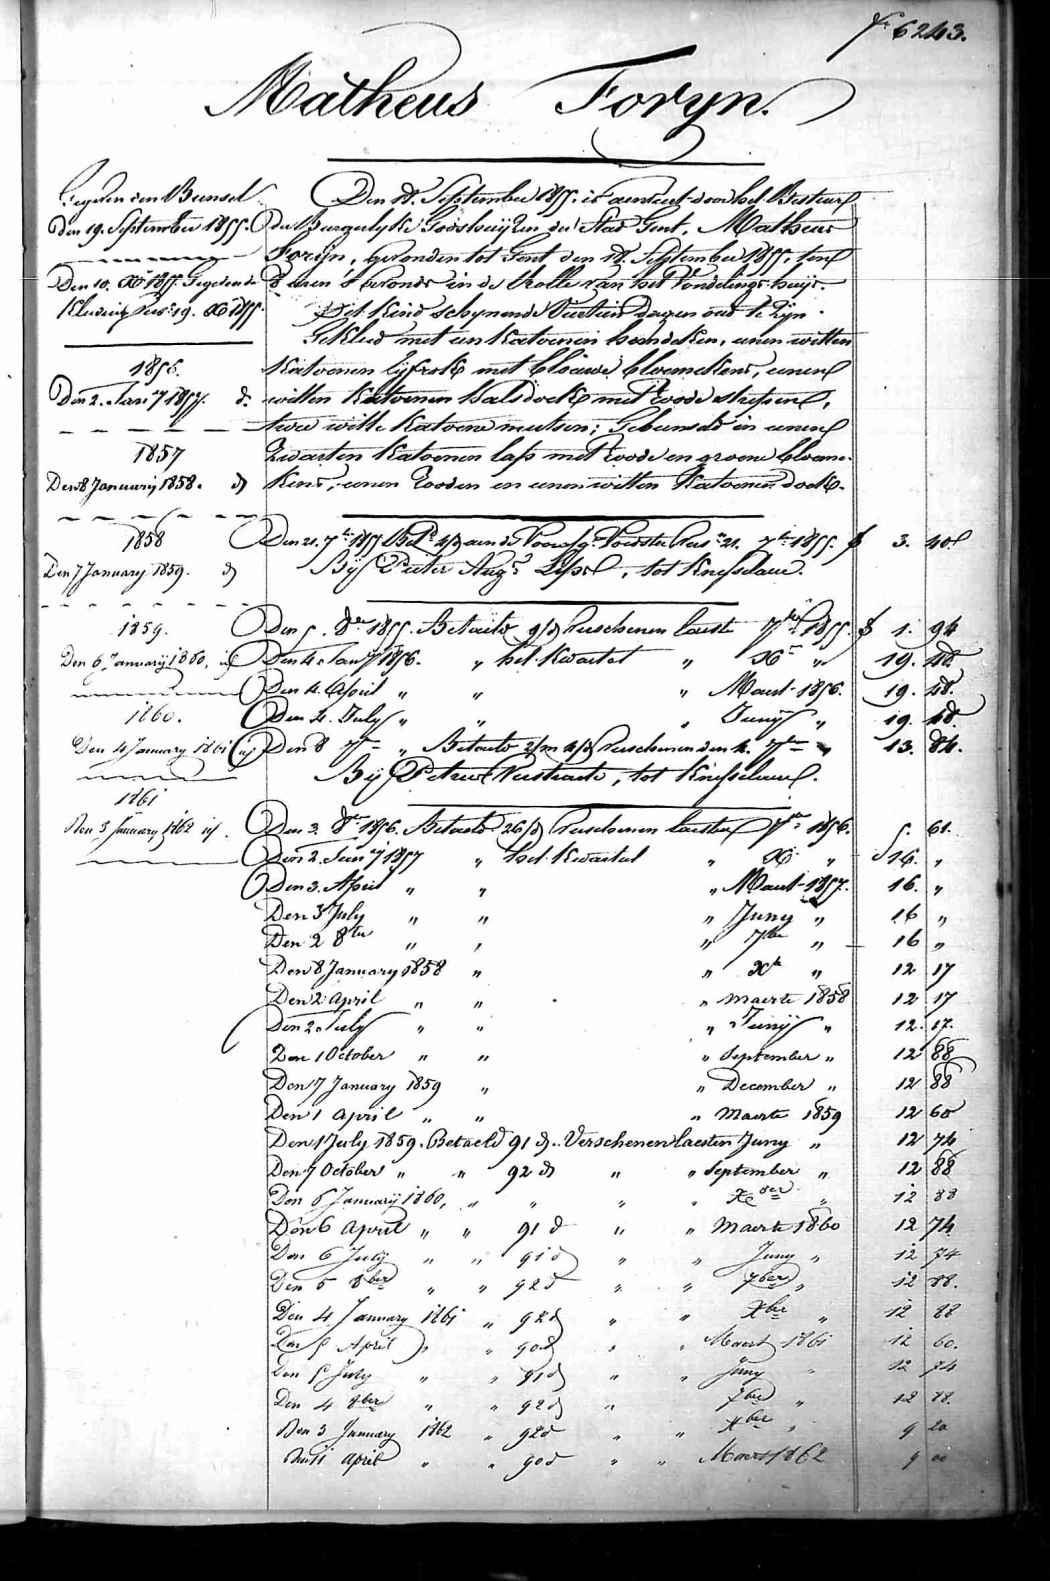 6243.
Matheus Foryn.
Gegeven den Bunsel
Den 19. September 1855.
Den 10. Xbr 1855. Gegeven de
Kleeding 19. Xb 1855.
1856.
Den 2. Jany 1857. d.
1857
Den 8 January 1858. d
1858
Den 7 January 1859. d
1859.
Den 6 Januarij 1860, id
1860.
Den 4 January 1861 id
1861
Den 3 January 1862 id.
Den 18. September 1855. is aenveert door het Bestuer
der Burgerlyke Godshuijzen der Stad Gent, Matheus
Foryn, gevonden tot Gent den 18. September 1855, ten
8 uren 's avonds in de Rolle van het Vondelings-huijs.
Dit Kind schynende Veertien dagen oud te zyn.
Gekleed met een Katoenen hemdeken, eenen witten
Katoenen lyfrok met blauwe bloemekens, eenen
witten Katoenen halsdoek met roode strepen,
twee witte Katoene mutsen; Gebunseld in eenen
zwarten Katoenen lap met roode en groene bloeme-
kens, eenen rooden en eenen witten Katoenen doek.
Den 21. 7br 1855 Betd aen de Voorlge Voedster 21. 7br 1855. f 3. 40
Bij Pieter Augt , tot Knesselaere.
Den 5. 8br 1855. Betaeld 9/d Verschenen laeste 7br 1855. f 1. 94
Den 4. Jany 1856. " het Kwartel " Xbr " 19. 48
Den 4. April " " " Maert 1856. 19. 48.
Den 4. July " " " Junij " 19. 48.
Den 8 7br " Betaeld 2/m 4/d Verschenen den 4. 7br " 13. 84.
Bij Petrus Verstraete, tot Knesselaere.
Den 3. 8br 1856. Betaeld 26/d Verschenen laesten 7br 1856. 5. 61.
Den 2. Jany 1857 " het Kwartel " Xbr " 16. "
Den 3. April " " " Maert 1857. 16. "
Den 3 July " " " Juny " 16 "
Den 2 8ber " " " 7ber " 16 "
Den 8 January 1858 " " Xbr " 12 17
Den 2 April " " " Maerte 1858 12 17
Den 2 July " " " Junij " 12. 17.
Den 1 October " " " September " 12 88
Den 7 January 1859 " " December " 12 88
Den 1 April " " " Maerte 1859 12 60
Den 1 July 1859. Betaeld 91 d. Verschenen laesten Juny " 12 74
Den 7 October " " 92 d " " September " 12 88
Den 6 Januarij 1860, " " " " Xber " 12 88
Den 6 April " " 91 d " " Maerte 1860 12 74
Den 6 July " " 91 d " " Juny " 12 74
Den 5 8ber " " 92 d " " 7ber " 12 88.
Den 4 January 1861 " 92 d " " Xber " 12 88
Den 5 April " " 90 d " " Maert 1861 12 60.
Den 5 July " " 91 d " " Juny " 12 74
Den 4 8ber " " 92 d " 7ber " 12 88.
Den 3 January 1862 " 92 d " " Xber " 9 20
April " " 90 d " " Maert 1862 9 00